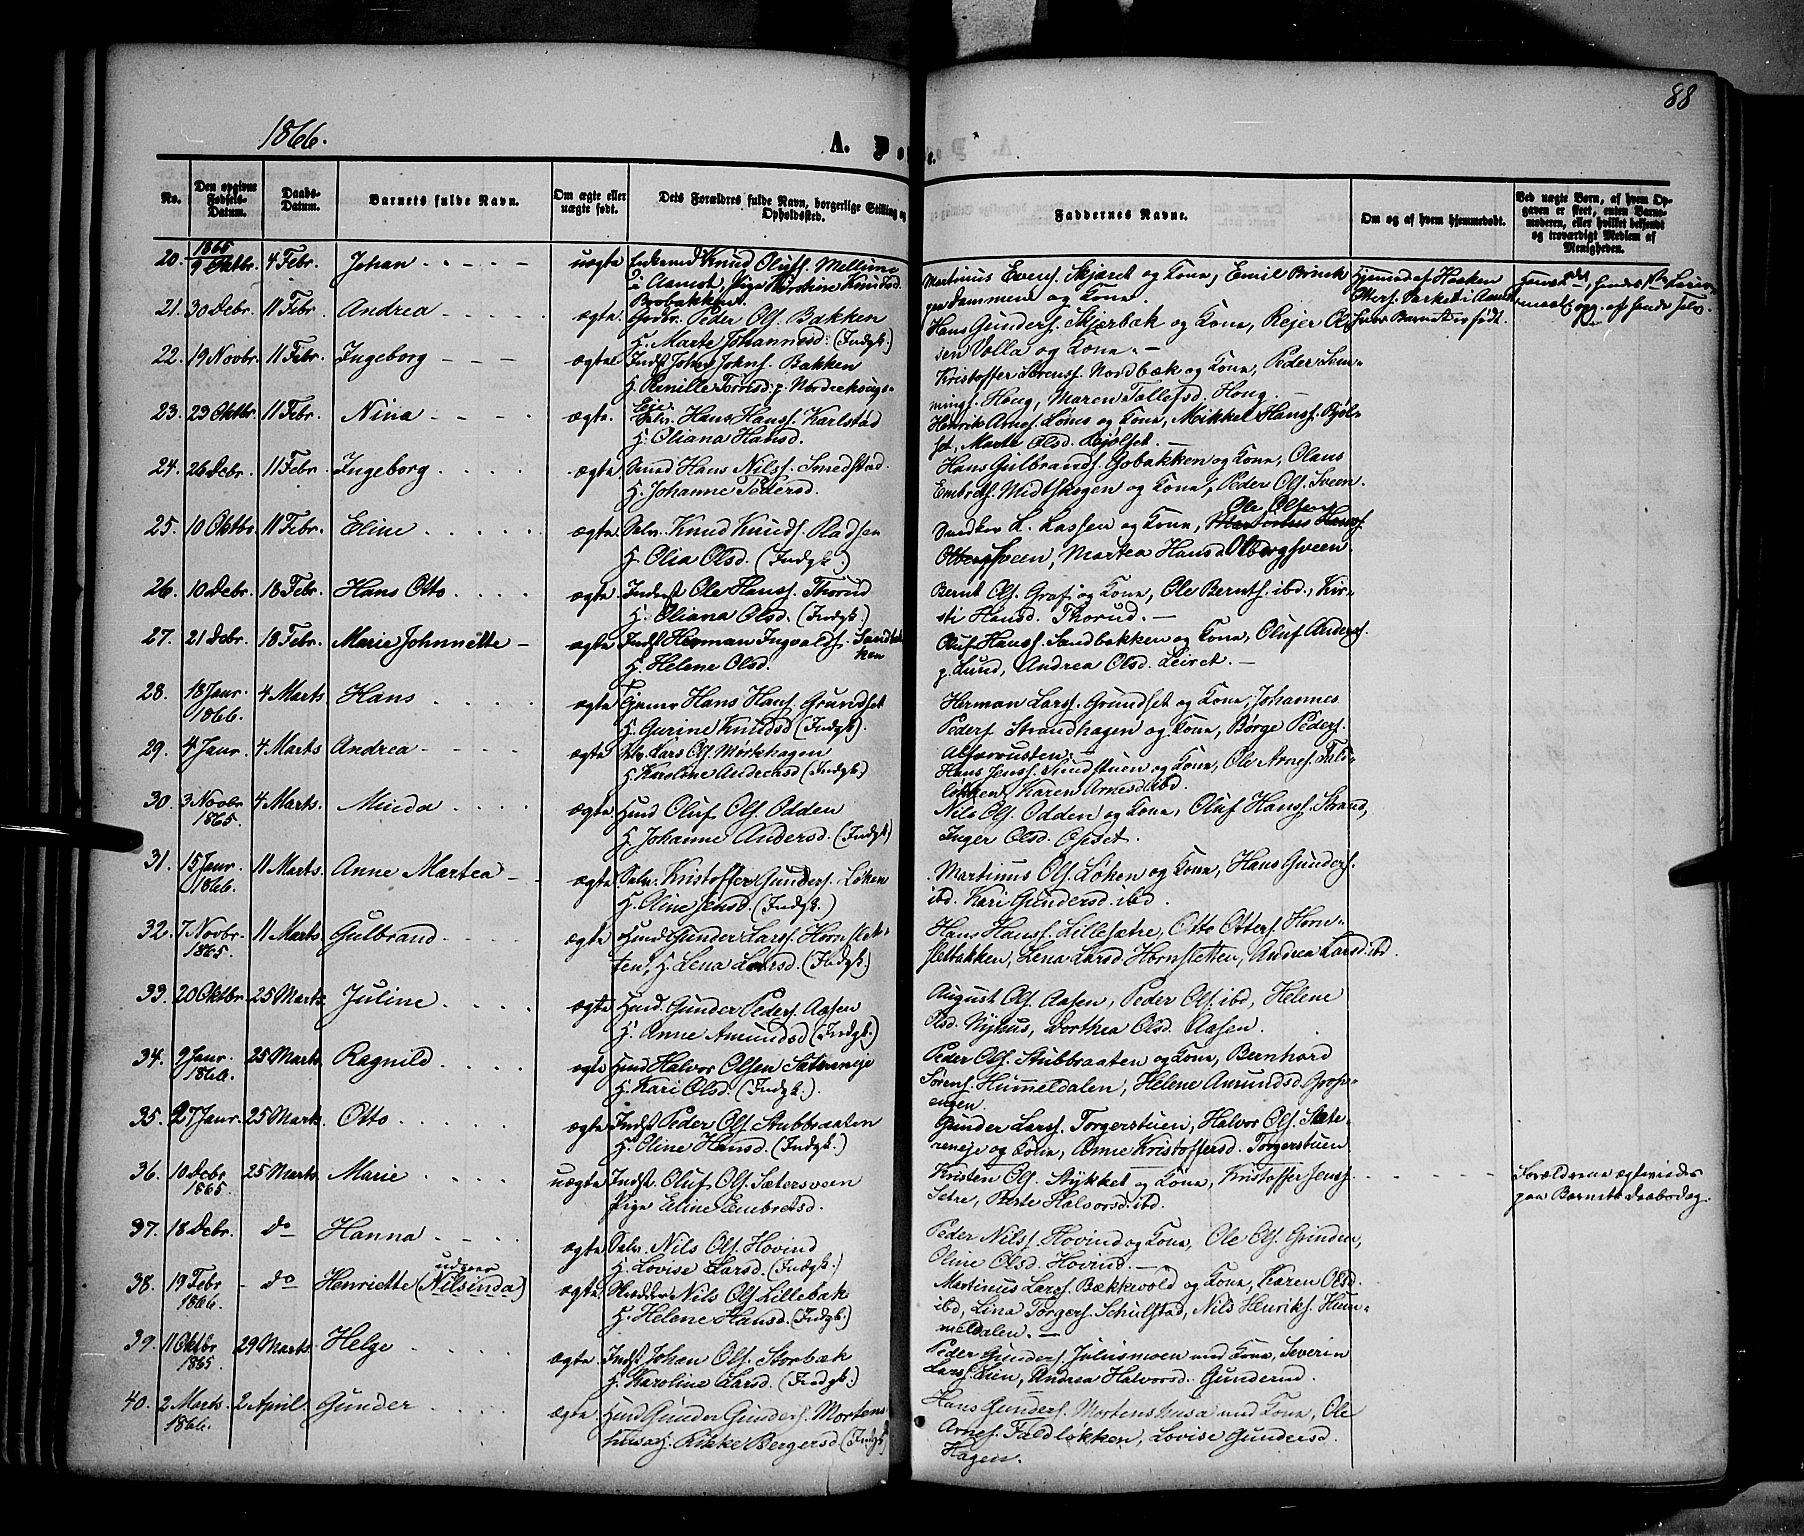 88
1866.
A. Dø t.
No.
Den opgivne Fødsels-Datum.
Daabs-Datum.
Barnets fulde Navn.
Om ægte eller uægte født.
Dets Forældres fulde Navn, borgerlige Stilling og Opholdssted.
Faddernes Navne.
Om og af hvem hjemmedøbt.
Ved uægte Børn, af hvem Opgaven er skeet, enten Barnemoderen, eller hvilket bekjendt og troværdigt Medlem af Menigheden.
20. 1865 9 Oktbr. 4 Febr. Johan uægte Knud Olufs. Mellum
i Aamot, Pige Kirstine Knudsd.
Brobakken
Martinus Evens. Skjæret og Kone, Emil Bruck
paa Dammen og Kone.
Hjemmed. af Haaken
21. 30 Debr. 11 Febr. Andrea ægte Peder Ols. Bakken
H. Marte Johannesd. (Indgk.)
Hans Gunders. Skjærbæk og Kone, Rejer Ol-
sen Volla og Kone. —
22. 19 Novbr. 11 Febr. Ingeborg ægte Indst Johans. Bakken
H. Pernille
Kristoffer Sørens. Nordbæk og Kone, Peder Sem-
mings. Houg, Maren Tollefsd. Houg.
23. 23 Oktbr. 11 Febr. Nina ægte. Hans Hans. Karlstad
H. Oliana Hansd.
Henrik Arnes. Løms og Kone, Mikkel Hans. Bjøl-
set, Marte Olsd. Bjølset. —
24. 26 Debr. 11 Febr. Ingeborg ægte Smed Hans Nils. Smedstad
H. Johanne Pedersd.
Hans Gulbrands. Gobakken og Kone, Olaus
Embrets. Midtskogen og Kone, Peder Ols. Sveen.
25. 10 Oktbr. 11 Febr. Eline ægte Selv. Knud Knuds. Radsen
H. Olia Olsd. (Indgk.)
Ole Olsen
Snedker L. Lassen og Kone, Martinus Hans.
Ottersveen, Martea Hansd. Olborgsveen.
26. 10 Debr. 18 Febr. Hans Otto ægte Inderst Ole Hans. Thorud
H. Oliana Olsd. (Indgk.)
Bernt Ols. Graf og Kone, Ole Bernts. ibd., Kir-
sti Hansd. Thorud. —
27. 21 Debr. 18 Febr. Marie Johnnette — ægte Indst Herman Ingvalds. Sandbak-
ken
H. Helene Olsd.
Oluf Hans. Sandbakken og Kone, Oluf Anders.
p. Lund, Andrea Olsd. Leiret. —
28. 18 Janr. 1866. 4 Marts Hans ægte Hans Hans. Grundset
H. Gurine Knudsd (Indgk.)
Herman Lars. Grundset og Kone, Johannes
Peders. Strandhagen og Kone, Børge Peders.
29. 4 Janr. 4 Marts Andrea ægte Lars Ols. Mørkhagen
H. Karoline Andersd (Indgk.)
Hans Jens. Sundstuen og Kone, Ole Arnes. Fald-
løkken, Karen Arnesd. ibd.
30. 3 Novbr 1865. 4 Marts. Minda ægte Hmd Oluf Ols. Odden
H. Johanne Andersd. (Indgk.)
Nils Ols. Odden og Kone, Oluf Hans. Strand,
Inger Olsd. Opset.
31. 15 Janr. 1866. 11 Marts. Anne Martea — ægte Selv. Kristoffer Gunders. Løken
H. Oline Jensd. (Indgk.)
Martinus Ols. Løken og Kone, Hans Gunders.
ibd. Kari Gundersd. ibd.
32. 7 Novbr. 1865. 11 Marts Gulbrand ægte Hmd Gunder Lars. Hornslet-
ten, H. Lena Larsd. (Indgk.)
Hans Hans. Lillesætre, Otto Otters. Horn-
sletbakken, Lena Larsd. Hornsletten, Andrea Larsd. ibd.
33. 20 Oktbr. 25 Marts Juline ægte Hmd. Gunder Peders. Aasen
H. Anne Amundsd. (Indgk.)
August Ols. Aasen, Peder Ols. ibd, Helene
Olsd. Nyhus, Dorthea Olsd. Aasen.
34. 9 Janr. 1866. 25 Marts. Ragnild ægte Hmd Halvor Olsen Sætereneje
H. Kari Olsd. (Indgk.)
Peder Ols. Stubbraaten og Kone, Bernhard
Sørens. Hummeldalen, Helene Amundsd. Grafs-
engen.
35. 27 Janr. 25 Marts. Otto ægte Indst Peder Ols. Stubbraaten
H. Oline Hansd. (Indgk.)
Gunder Lars. Torgerstuen, Halvor Ols. Sæte-
reneje og Kone, Anne Kristoffersd. Torgerstuen
36. 10 Debr 1865. 25 Marts. Marie uægte Indst. Oluf Ols. Sætersveen
Pige Eline Embretsd.
Kristen Ols. Stykket og Kone, Kristoffer Jens.
Setre, Berte Halvorsd. ibd.
Forældrene ægteviedes
paa Barnets Daabsdag.
37. 18 Debr. do Hanna ægte Selv. Nils Ols. Hovind
H. Lovise Larsd. (Indgk.)
Peder Nils. Hovind og Kone, Ole Ols. Grinden,
Oline Olsd. Hovind. —
38. 19 Febr 1866. do Henriette (Nilsinda) udgaar ægte. Nils Ols. Lillebæk
H. Helene Hansd. (Indgk.)
Martinus Lars. Bækkevold og Kone, Karen Olsd.
ibd, Lina Torgers. Schulstad, Nils Henriks. Hum-
meldalen. —
39. 11 Oktbr 1865 29 Marts Helge ægte Indst. Johan Ols. Storbæk
H. Karoline Larsd. (Indgk.)
Peder Gunders. Juliusmoen med Kone, Severin
Lars. Lien, Andrea Halvorsd. Gunderud.
40. 2 Marts 1866. 2 April Gunder ægte Hmd Gunder Gunders. Mortens-
husa, H. Rikke Bergersd. (Indgk.)
Hans Gunders. Mortenshusa med Kone, Ole
Arnes. Faldløkken, Lovise Gundersd.
Hagen.